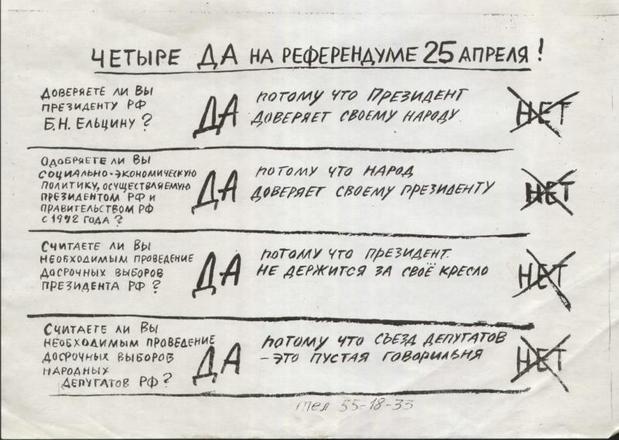 ЧЕТЫРЕ ДА НА РЕФЕРЕНДУМЕ 25 АПРЕЛЯ!
ДОВЕРЯЕТЕ ЛИ ВЫ
ПРЕЗИДЕНТУ РФ
Б.Н. ЕЛЬЦИНУ?
ДА
ПОТОМУ ЧТО ПРЕЗИДЕНТ
ДОВЕРЯЕТ СВОЕМУ НАРОДУ
НЕТ
ОДОБРЯЕТЕ ЛИ ВЫ
СОЦИАЛЬНО-ЭКОНОМИЧЕСКУЮ
ПОЛИТИКУ, ОСУЩЕСТВЛЯЕМУЮ
ПРЕЗИДЕНТОМ РФ И
ПРАВИТЕЛЬСТВОМ РФ
С 1992 ГОДА?
ДА
ПОТОМУ ЧТО НАРОД
ДОВЕРЯЕТ СВОЕМУ ПРЕЗИДЕНТУ
НЕТ
СЧИТАЕТЕ ЛИ ВЫ
НЕОБХОДИМЫМ ПРОВЕДЕНИЕ
ДОСРОЧНЫХ ВЫБОРОВ
ПРЕЗИДЕНТА РФ?
ДА
ПОТОМУ ЧТО ПРЕЗИДЕНТ
НЕ ДЕРЖИТСЯ ЗА СВОЁ КРЕСЛО
НЕТ
СЧИТАЕТЕ ЛИ ВЫ
НЕОБХОДИМЫМ ПРОВЕДЕНИЕ
ДОСРОЧНЫХ ВЫБОРОВ
НАРОДНЫХ
ДЕПУТАТОВ РФ?
ДА
ПОТОМУ ЧТО СЪЕЗД ДЕПУТАТОВ
– ЭТО ПУСТАЯ ГОВОРИЛЬНЯ
НЕТ
тел 55-18-33